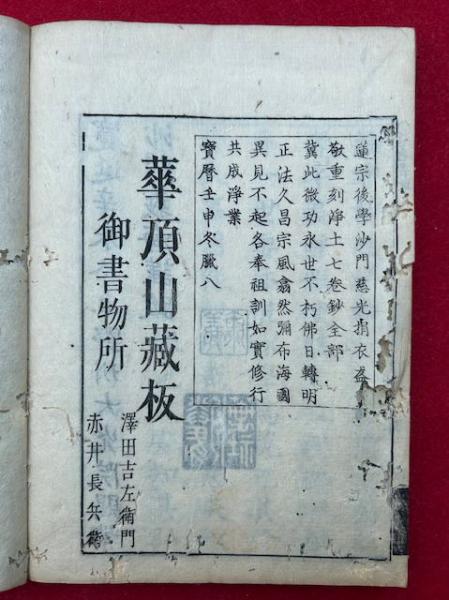 蓮宗後學沙門慈光捐衣盋
敬重刻淨土七卷鈔全部
冀此微功永世不朽佛日轉明
正法久昌宗風翕然彌布海國
異見不起各奉祖訓如實修行
共成淨業
寶曆壬申冬臘八
華頂山藏板
御書物所
澤田吉左衛門
赤井長兵衛